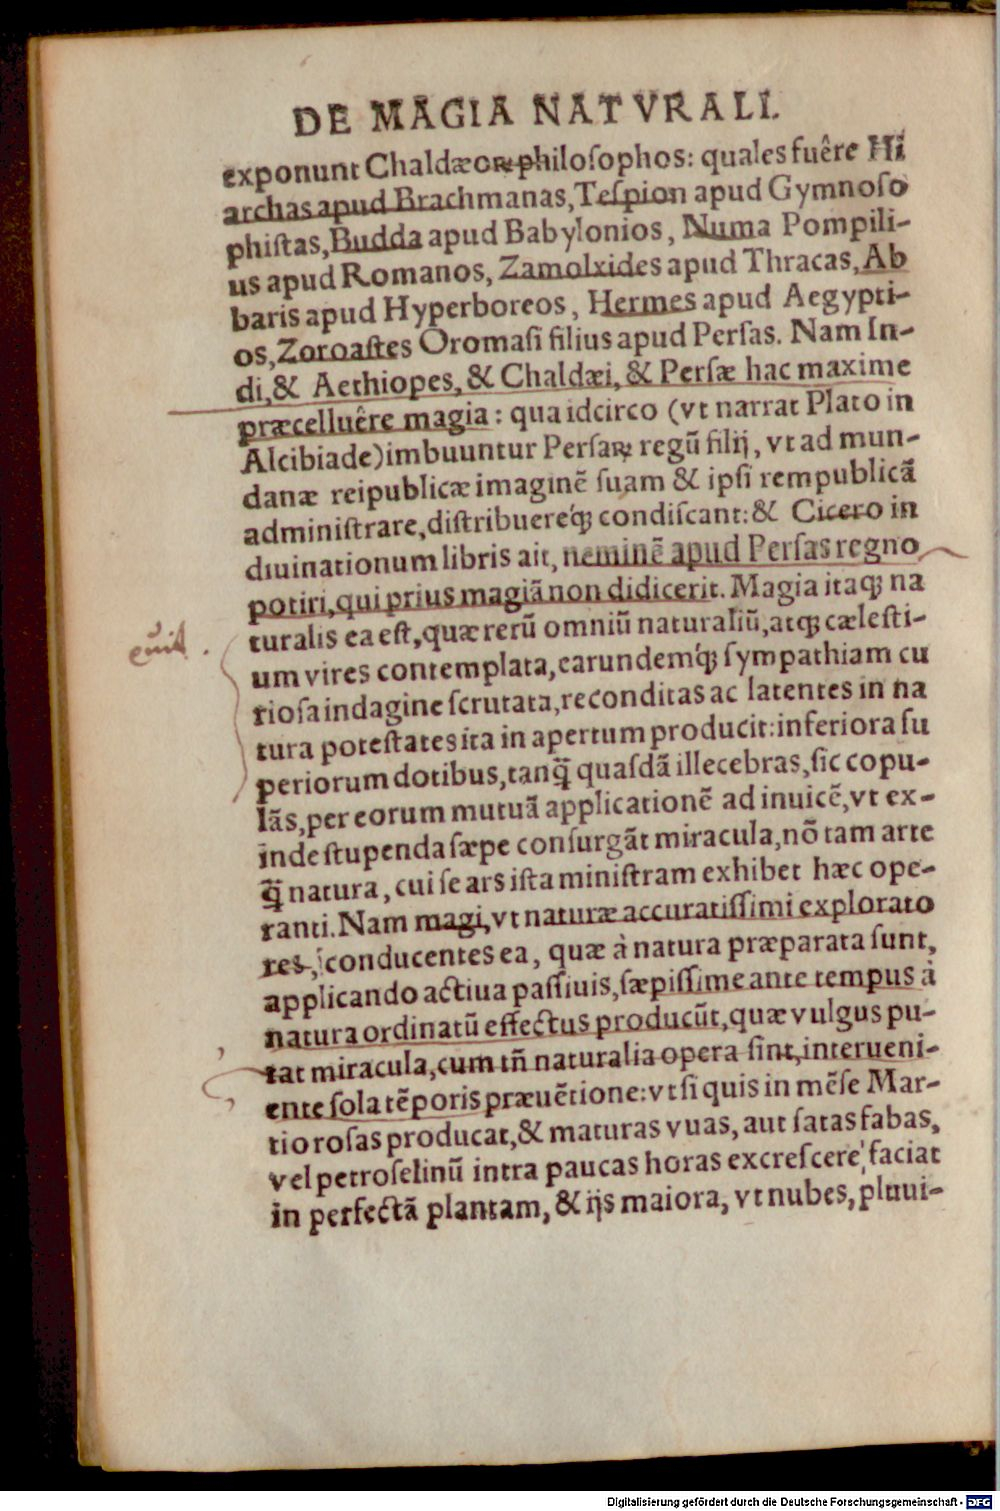 DE MAGIA NATVRALI.
exponunt Chaldæoꝝ philoſophos: quales fuêre Hi
archas apud Brachmanas, Teſpion apud Gymnoſo
phiſtas, Budda apud Babylonios, Numa Pompili-
us apud Romanos, Zamolxides apud Thracas, Ab
baris apud Hyperboreos, Hermes apud Aegypti-
os, Zoroaſtes Oromaſi filius apud Perſas. Nam In-
di, & Aethiopes, & Chaldæi, & Perſæ hac maxime
præcelluêre magia: qua idcirco (vt narrat Plato in
Alcibiade) imbuuntur Perſaꝝ regũ filij, vt ad mun-
danæ reipublicæ imaginẽ ſuam & ipſi rempublicã
adminiſtrare, diſtribuereq́ꝫ condiſcant: & Cicero in
diuinationum libris ait, neminẽ apud Perſas regno
potiri, qui prius magiã non didicerit. Magia itaqꝫ na
turalis ea eſt, quæ rerũ omniũ naturaliũ, atqꝫ cæleſti-
um vires contemplata, earundemq́ꝫ ſympathiam cu
rioſa indagine ſcrutata, reconditas ac latentes in na
tura poteſtates ita in apertum producit: inferiora ſu
periorum dotibus, tanq̃ quaſdã illecebras, ſic copu-
lãs, per eorum mutuã applicationẽ ad inuicẽ, vt ex-
inde ſtupenda ſæpe conſurgãt miracula, nõ tam arte
q̃ natura, cui ſe ars iſta miniſtram exhibet hæc ope-
ranti. Nam magi, vt naturæ accuratiſſimi explorato
res, conducentes ea, quæ à natura præparata ſunt,
applicando actiua paſſiuis, ſæpiſſime ante tempus à
natura ordinatũ effectus producũt, quæ vulgus pu-
tat miracula, cum tñ naturalia opera ſint, interueni-
ente ſola tẽporis præuẽtione: vt ſi quis in mẽſe Mar-
tio roſas producat, & maturas vuas, aut ſatas fabas,
vel petroſelinũ intra paucas horas excreſcere faciat
in perfectã plantam, & ijs maiora, vt nubes, pluui-
Digitalisierung gefördert durch die Deutsche Forschungsgemeinschaft - DFG